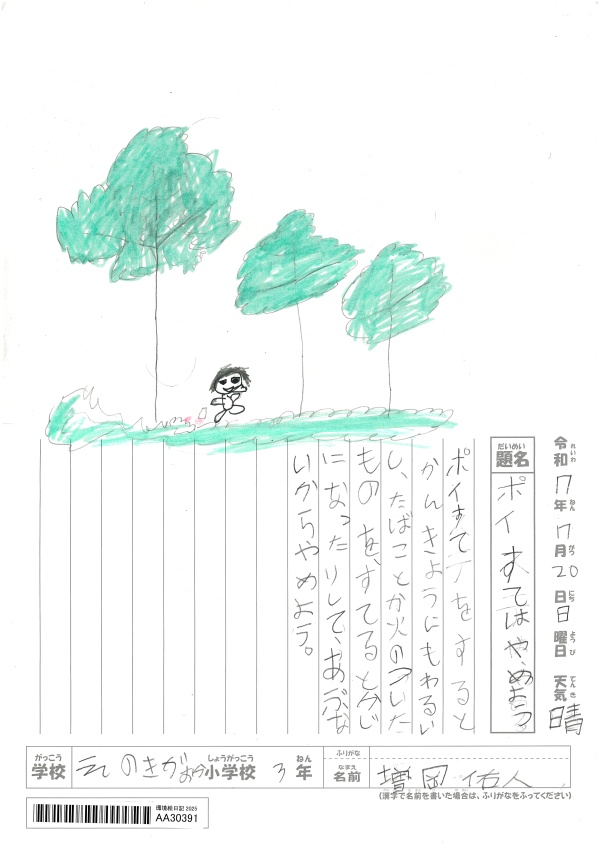 令和れいわ7年ねん7月がつ20日にち日曜日ようび天気てんき晴
題名だいめい ポイすてはやめよう
ポイすてをすると
かんきようにもわるい
し、たばことか火のついた
ものを、すてるとかじ
になったりして、あぶな
いからやめよう。
学校がっこう えのきがおか小学校しょうがっこう 3年ねん
ふりがな
名前なまえ 増岡佑人
(漢字で名前を書いた場合は、ふりがなをふってください)
環境絵日記 2025
AA30391